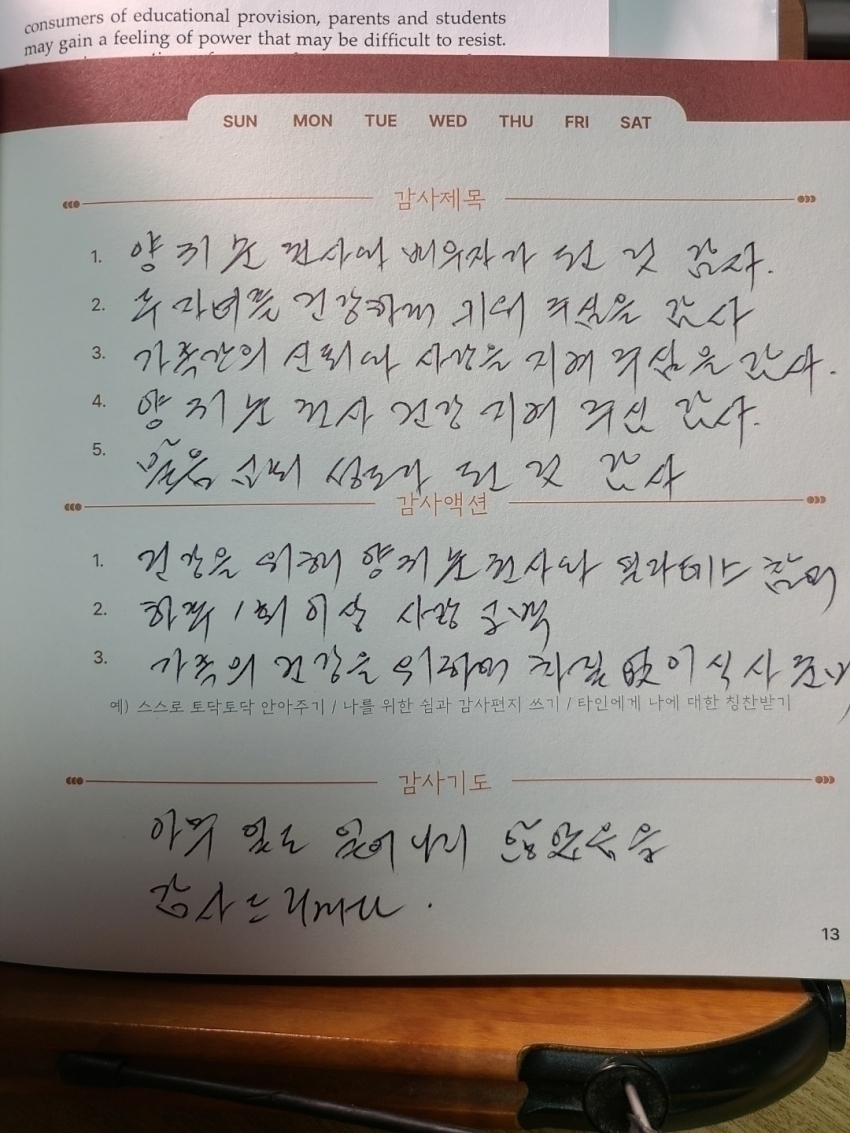 consumers of educational provision, parents and students
may gain a feeling of power that may be difficult to resist.
SUN MON TUE WED THU FRI SAT
감사제목
1. 양귀분 권사의 배우자가 된 것 감사.
2. 두 자녀를 건강하게 키워 주심을 감사
3. 가족간의 신뢰와 사랑을 지켜 주심을 감사.
4. 양귀분 권사 건강 지켜 주심 감사.
5. 믿음 성도가 된 것 감사
감사액션
1. 건강을 위해 양귀분권사와 필라테스 참여
2. 하루 1회 이상 사랑 고백
3. 가족의 건강을 위하여 차질 없이 식사 준비
예) 스스로 토닥토닥 안아주기 / 나를 위한 쉼과 감사편지 쓰기 / 타인에게 나에 대한 칭찬받기
감사기도
아무 일도 일어나지 않았음을
감사드립니다.
13